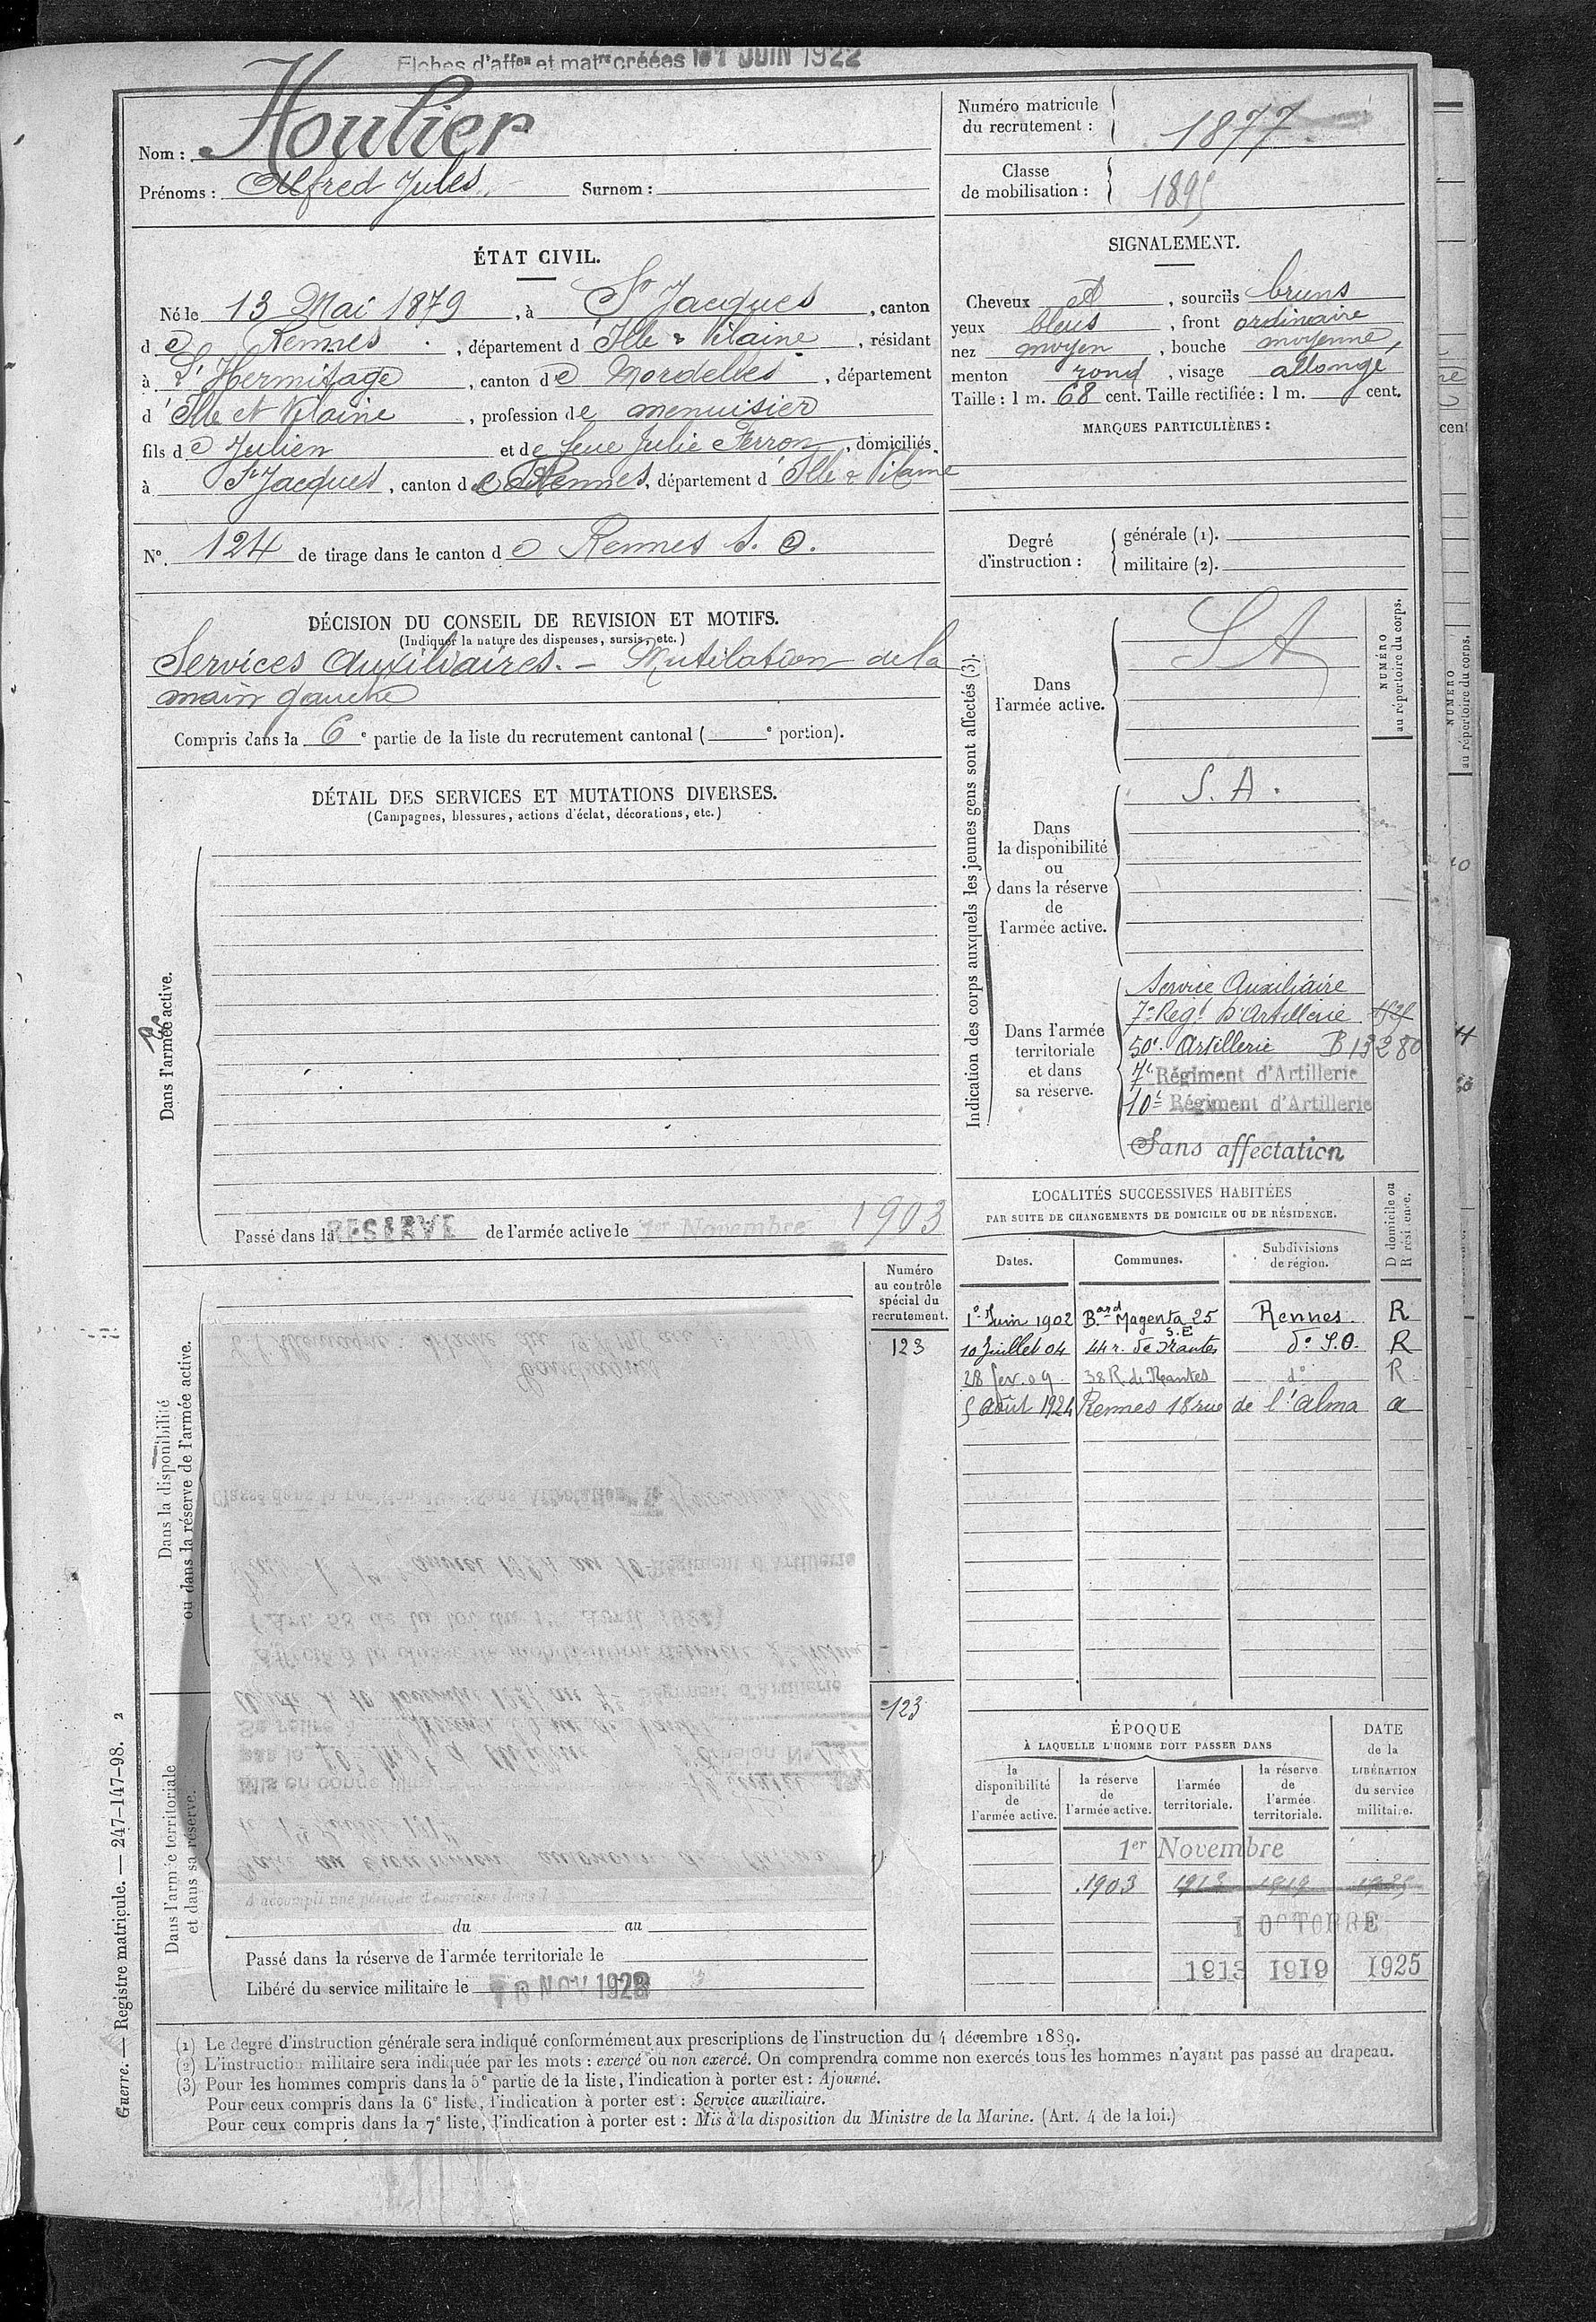 Fiches d'affon et matre créées le 1 JUIN 1922
Nom : Houlier
Prénoms : Alfred Jules Surnom :
Numéro matricule du recrutement : 1877
Classe de mobilisation : 1895
ÉTAT CIVIL.
Né le 13 Mai 1879, à St Jacques, canton
de Rennes, département d'Ille & Vilaine, résidant
à L'Hermitage, canton de Mordelles, département
d'Ille et Vilaine, profession de menuisier
fils de Julien et de feue Julie Ferron, domiciliés
à St Jacques, canton de Rennes, département d'Ille & Vilaine
N° 124 de tirage dans le canton de Rennes S. O.
SIGNALEMENT.
Cheveux et, sourcils bruns
yeux bleus, front ordinaire
nez moyen, bouche moyenne,
menton rond, visage allongé
Taille : 1 m. 68 cent. Taille rectifiée : 1 m. cent.
MARQUES PARTICULIÈRES :
Degré d'instruction :
générale (1).
militaire (2).
DÉCISION DU CONSEIL DE REVISION ET MOTIFS.
(Indiquer la nature des dispenses, sursis, etc.)
Services Auxiliaires. – Mutilation de la
main gauche
Compris dans la 6e partie de la liste du recrutement cantonal ( e portion).
DÉTAIL DES SERVICES ET MUTATIONS DIVERSES.
(Campagnes, blessures, actions d'éclat, décorations, etc.)
Dans l'armée active.
Passé dans la RESERVE de l'armée active le 1er Novembre 1903
Indication des corps auxquels les jeunes gens sont affectés (3).
NUMÉRO au répertoire du corps.
Dans l'armée active.
SA
Dans la disponibilité ou dans la réserve de l'armée active.
S. A.
Dans l'armée territoriale et dans sa réserve.
Service Auxiliaire
7e Regt d'Artillerie
50e Artillerie B 13280
7e Régiment d'Artillerie
10e Régiment d'Artillerie
Sans affectation
LOCALITÉS SUCCESSIVES HABITÉES
PAR SUITE DE CHANGEMENTS DE DOMICILE OU DE RÉSIDENCE.
D domicile ou R résidence.
Dates. Communes. Subdivisions de région.
1er Juin 1902 Bard Magenta 25 Rennes. R
S.E
10 Juillet 04 44 r. de Nantes do S.O. R
28 fev. 09 38 R. de Nantes do R
5 Août 1924 Rennes 18 rue de l'Alma a
Dans la disponibilité ou dans la réserve de l'armée active.
Numéro au contrôle spécial du recrutement.
123
Dans l'armée territoriale et dans sa réserve.
123
A accompli une période d'exercices dans l
du au
Passé dans la réserve de l'armée territoriale le
Libéré du service militaire le 10 NOV 1928
ÉPOQUE
À LAQUELLE L'HOMME DOIT PASSER DANS
la disponibilité de l'armée active.
la réserve de l'armée active.
l'armée territoriale.
la réserve de l'armée territoriale.
DATE de la LIBÉRATION du service militaire.
1er Novembre
1903 1913 1919
1 OCTOBRE
1913 1919 1925
(1) Le degré d'instruction générale sera indiqué conformément aux prescriptions de l'instruction du 4 décembre 1889.
(2) L'instruction militaire sera indiquée par les mots : exercé ou non exercé. On comprendra comme non exercés tous les hommes n'ayant pas passé au drapeau.
(3) Pour les hommes compris dans la 5e partie de la liste, l'indication à porter est : Ajourné.
Pour ceux compris dans la 6e liste, l'indication à porter est : Service auxiliaire.
Pour ceux compris dans la 7e liste, l'indication à porter est : Mis à la disposition du Ministre de la Marine. (Art. 4 de la loi.)
Guerre. — Registre matricule. — 247-147-98. 2